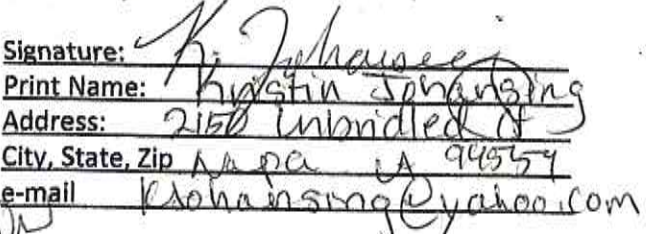 Signature: K. Johansing
Print Name: Kristin Johansing
Address: 2150 Unbridled Ct
City, State, Zip Napa CA 94559
e-mail KJohansing@yahoo.com